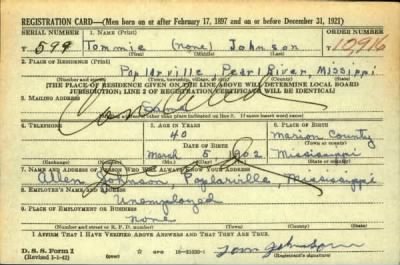 REGISTRATION CARD—(Men born on or after February 17, 1897 and on or before December 31, 1921)
SERIAL NUMBER 1. NAME (Print) ORDER NUMBER
599 Tommie (none) Johnson 10916
(First) (Middle) (Last)
2. PLACE OF RESIDENCE (Print)
Poplarville Pearl River, Mississippi
(Number and street) (Town, township, village, or city) (County) (State)
[THE PLACE OF RESIDENCE GIVEN ON THE LINE ABOVE WILL DETERMINE LOCAL BOARD
JURISDICTION; LINE 2 OF REGISTRATION CERTIFICATE WILL BE IDENTICAL]
3. MAILING ADDRESS
Cancelled
Same
[Mailing address if other than place indicated on line 2. If same insert word same]
4. TELEPHONE 5. AGE IN YEARS 6. PLACE OF BIRTH
40 Marion County
DATE OF BIRTH
March 5 1902 Mississippi
(Exchange) (Number) (Mo.) (Day) (Yr.) (State or country)
7. NAME AND ADDRESS OF PERSON WHO WILL ALWAYS KNOW YOUR ADDRESS
Allen Johnson, Poplarville, Mississippi
8. EMPLOYER'S NAME AND ADDRESS
Unemployed
9. PLACE OF EMPLOYMENT OR BUSINESS
None
(Number and street or R. F. D. number) (Town) (County) (State)
I AFFIRM THAT I HAVE VERIFIED ABOVE ANSWERS AND THAT THEY ARE TRUE.
D. S. S. Form 1
(Revised 1-1-42) (over) Tom Johnson
(Registrant's signature)